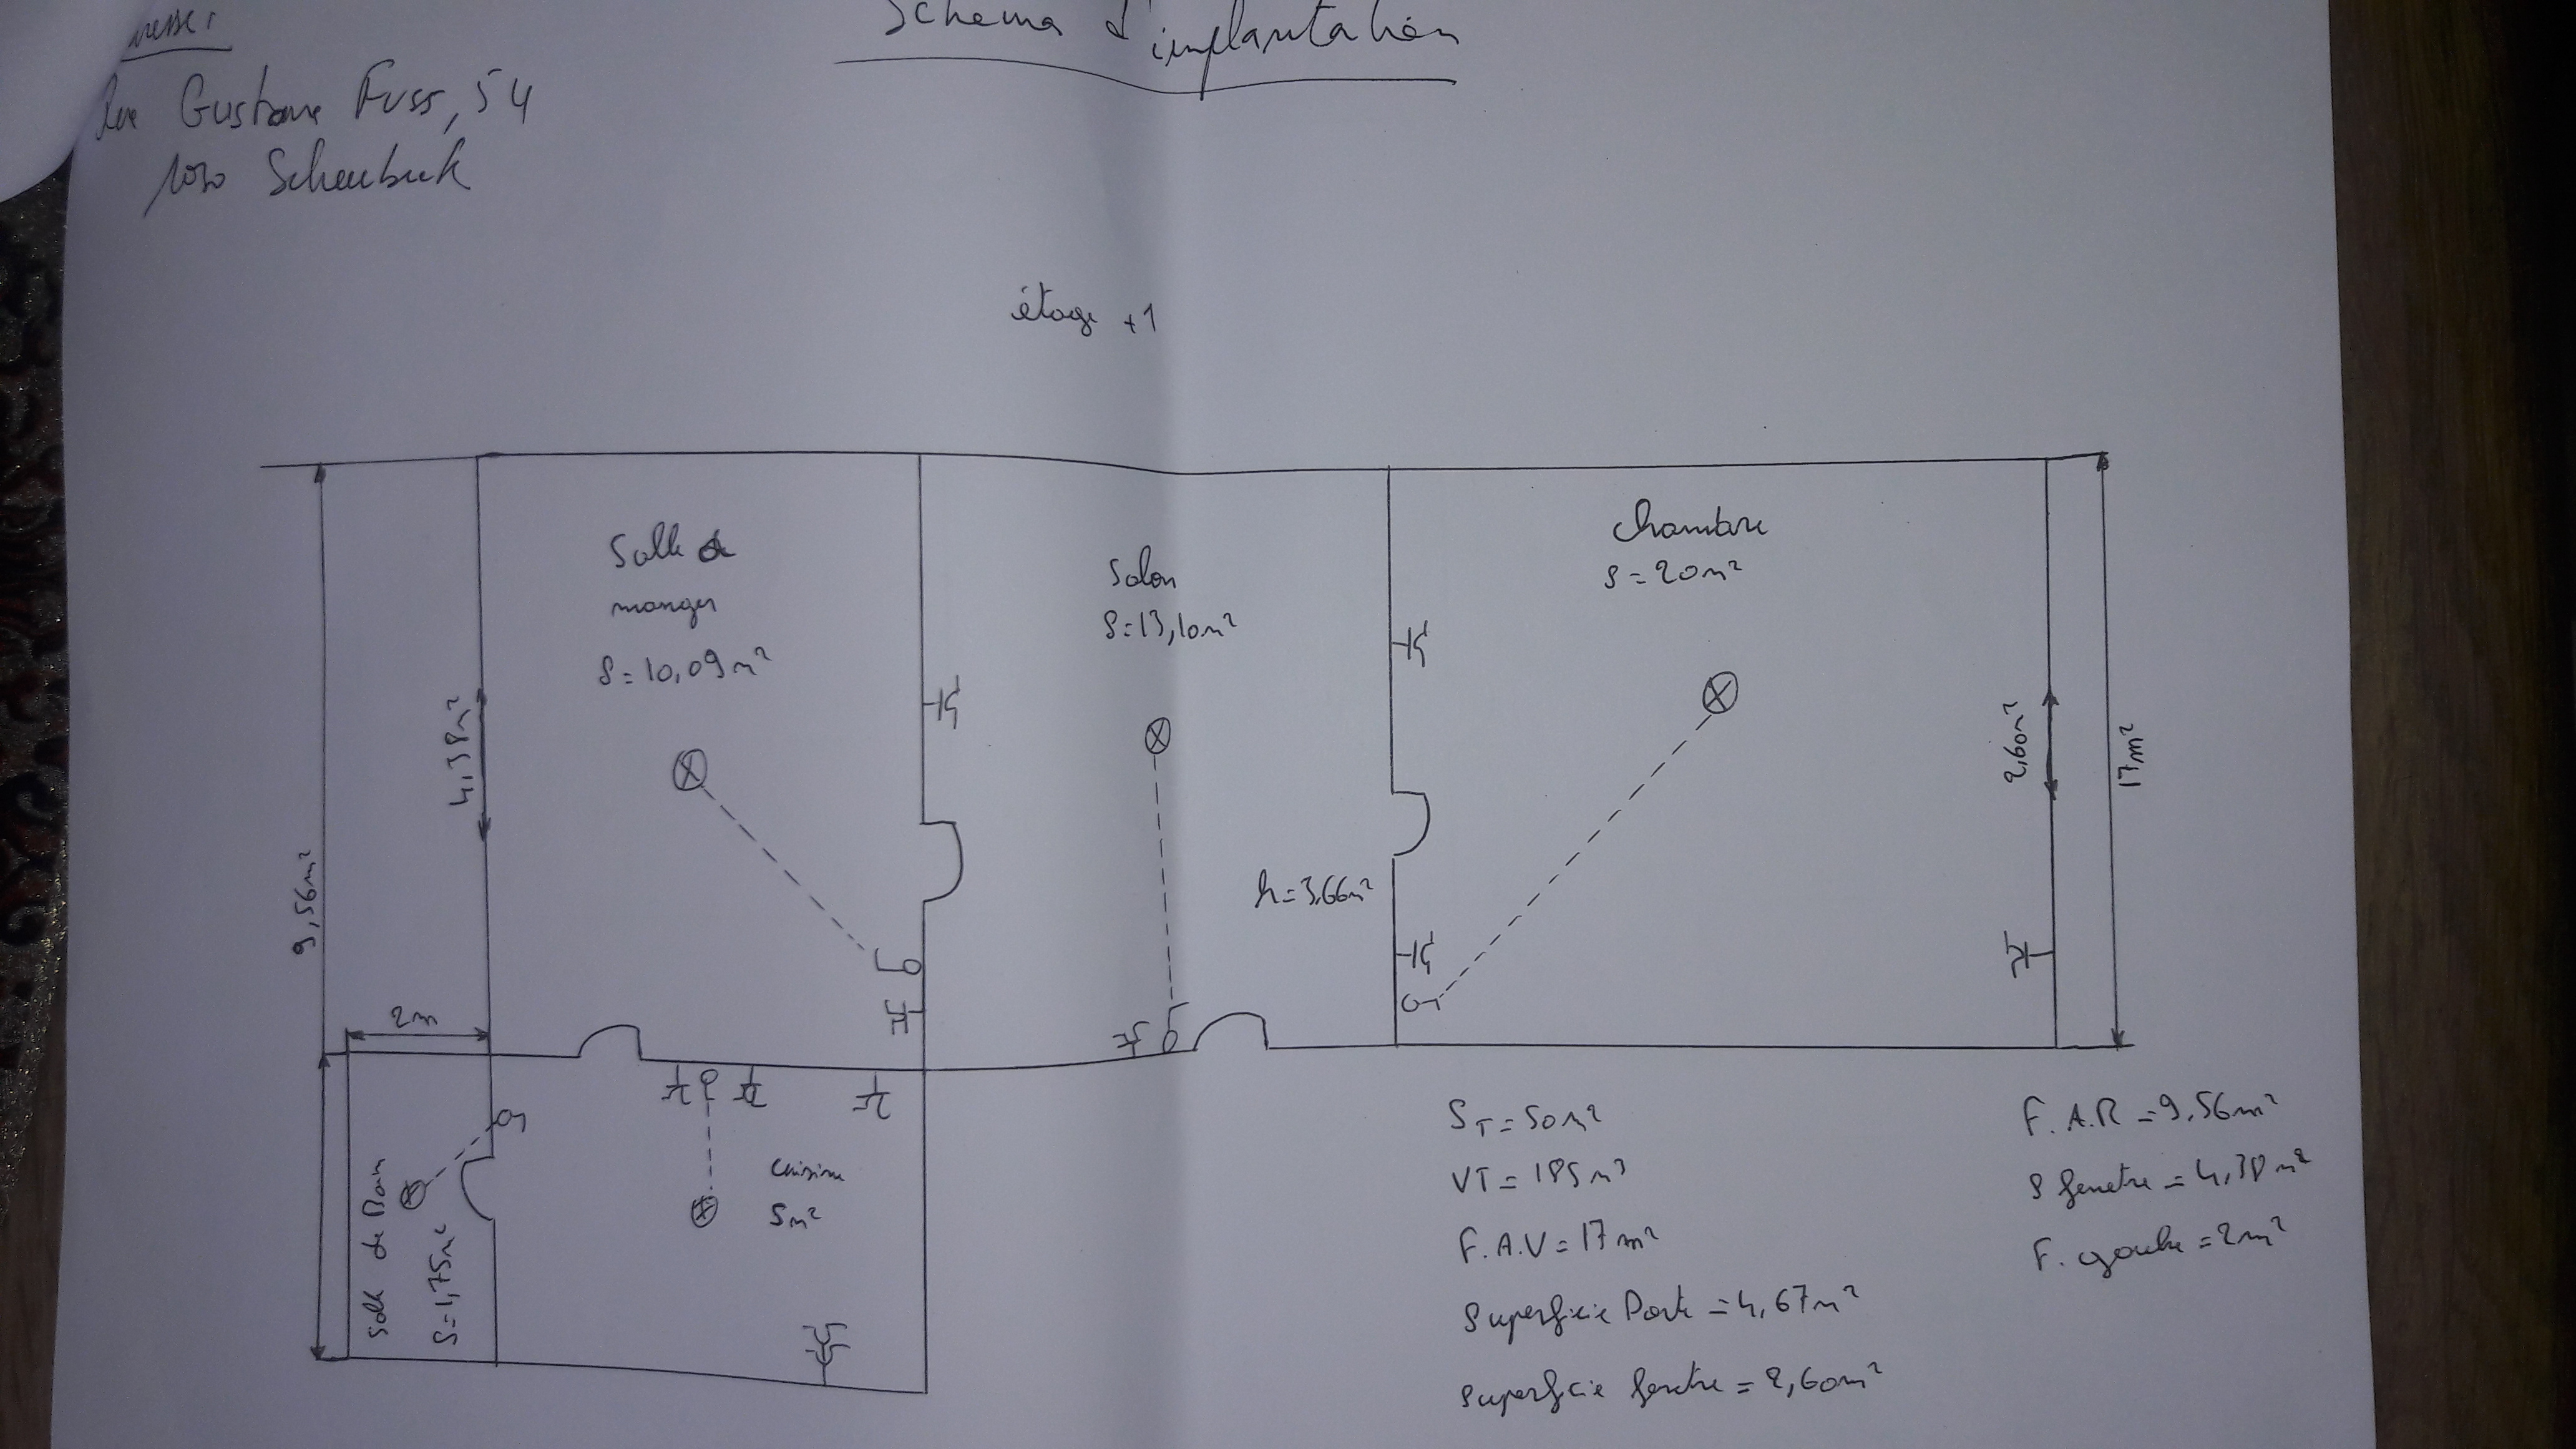 Schema d'implantation
Rue Gustave Fuss, 54
1030 Schaerbeek
étage +1
Salle de
manger
S=10,09m²
Salon
S=13,10m²
Chambre
S=20m²
4,38m²
9,56m²
2,60m²
17m²
h=3,66m²
2m
Salle de Bain
S=1,75m²
cuisine
5m²
ST=50m²
VT=185m³
F.A.V=17m²
Superficie Porte=4,67m²
Superficie fenetre=2,60m²
F.A.R=9,56m²
S fenetre=4,38m²
F. gauche=2m²